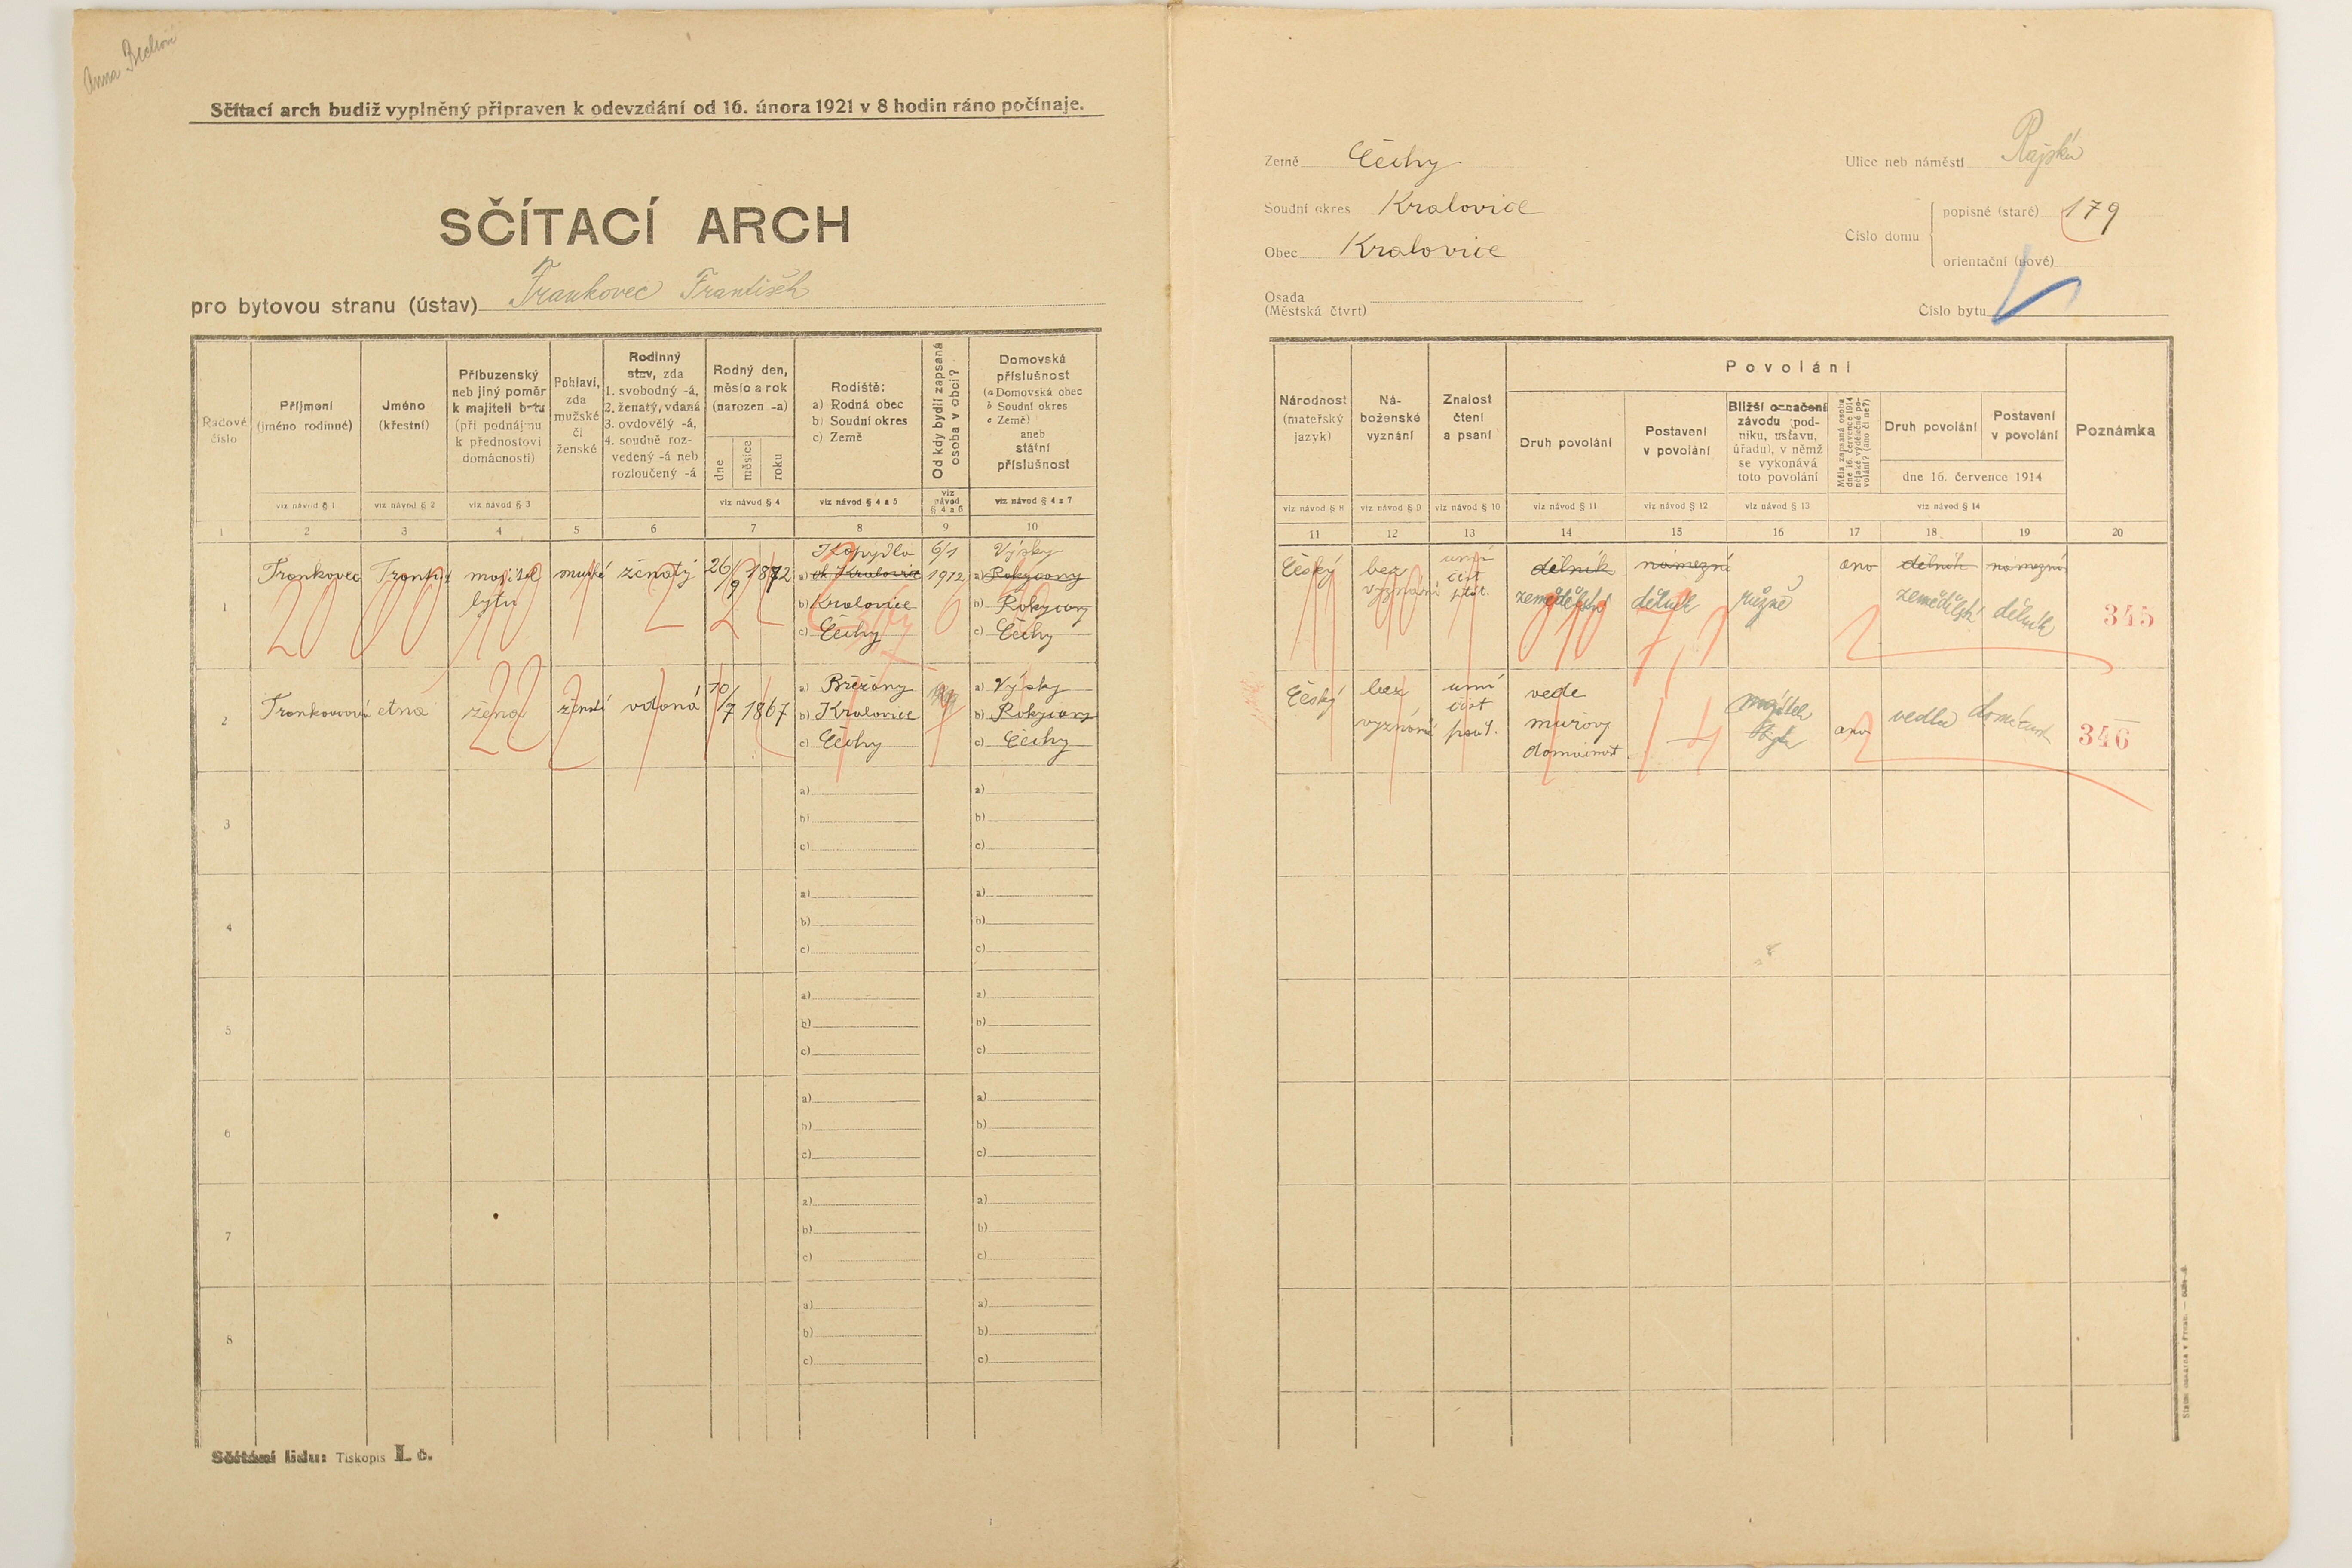 Anna
Sčítací arch budiž vyplněný připraven k odevzdání od 16. února 1921 v 8 hodin ráno počínaje.
SČÍTACÍ ARCH
pro bytovou stranu (ústav) Frankovec František
Řadové číslo
Příjmení (jméno rodinné)
Jméno (křestní)
Příbuzenský neb jiný poměr k majiteli bytu (při podnájmu k přednostovi domácnosti)
Pohlaví, zda mužské či ženské
Rodinný stav, zda 1. svobodný -á, 2. ženatý, vdaná 3. ovdovělý -á, 4. soudně rozvedený -á neb rozloučený -á
Rodný den, měsíc a rok (narozen -a)
dne měsíce roku
Rodiště: a) Rodná obec b) Soudní okres c) Země
Od kdy bydlí zapsaná osoba v obci?
Domovská příslušnost (a Domovská obec b Soudní okres c Země) aneb státní příslušnost
viz návod § 1 viz návod § 2 viz návod § 3 viz návod § 4 viz návod § 4 a 5 viz návod § 4 a 6 viz návod § 4 a 7
1 2 3 4 5 6 7 8 9 10
1 Frankovec Frant. majitel bytu mužské ženatý 26/9 1872
Kopydlo
a) Kralovice
b) Kralovice
c) Čechy
6/1 1912
Výsky
a) Rokycany
b) Rokycany
c) Čechy
2 žena ženské vdaná 10/7 1867
a) Břežany
b) Kralovice
c) Čechy
a) Výsky
b) Rokycany
c) Čechy
3 a) b) c) a) b) c)
4 a) b) c) a) b) c)
5 a) b) c) a) b) c)
6 a) b) c) a) b) c)
7 a) b) c) a) b) c)
8 a) b) c) a) b) c)
Sčítání lidu: Tiskopis I. č.
Země Čechy
Soudní okres Kralovice
Obec Kralovice
Osada (Městská čtvrť)
Ulice neb náměstí Rajská
Číslo domu
popisné (staré) 179
orientační (nové)
Číslo bytu
Národnost (mateřský jazyk)
Náboženské vyznání
Znalost čtení a psaní
Povolání
Druh povolání
Postavení v povolání
Bližší označení závodu podniku, ústavu, úřadu), v němž se vykonává toto povolání
Měla zapsaná osoba dne 16. července 1914 nějaké výdělečné povolání? (ano či ne?)
Druh povolání
Postavení v povolání
dne 16. července 1914
Poznámka
viz návod § 8 viz návod § 9 viz návod § 10 viz návod § 11 viz návod § 12 viz návod § 13 viz návod § 14
11 12 13 14 15 16 17 18 19 20
Český bez vyznání umí číst dělník námezní ano dělník námezní
zemědělský dělník různě zemědělský dělník 345
Český bez vyznání umí číst psát. vede mužovy domácnost majitel bytu ano vedla domácnost 346